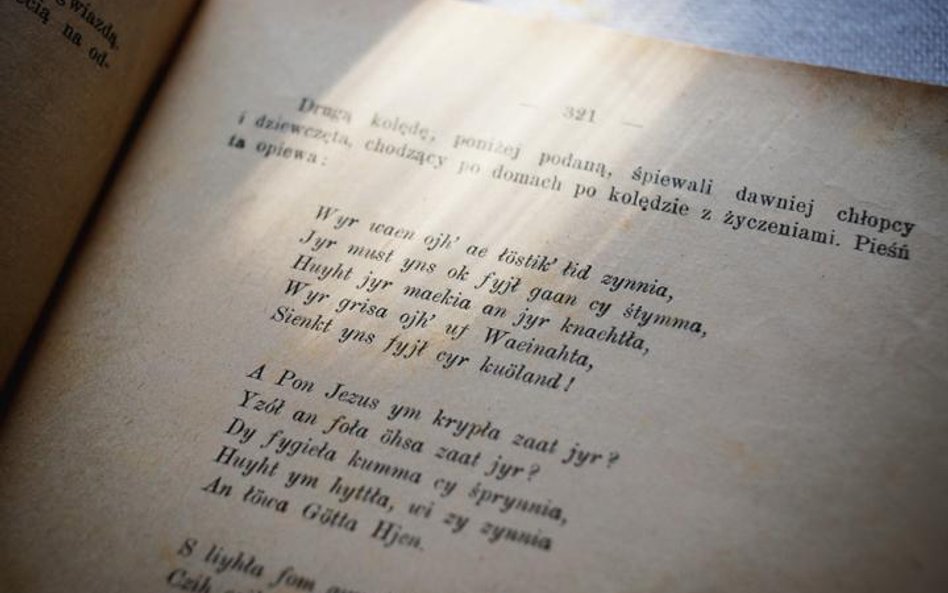 gwiazdą,
cią na od-
— 321 —
Drugą kolędę, poniżej podaną, śpiewali dawniej chłopcy
i dziewczęta, chodzący po domach po kolędzie z życzeniami. Pieśń
ta opiewa:
Wyr waen ojh' ae łöstik' łid zynnia,
Jyr must yns ok fyjł gaan cy śtymma,
Huyht jyr maekia an jyr knachtła,
Wyr grisa ojh' uf Waeinahta,
Sienkt yns fyjł cyr kuöland!
A Pon Jezus ym krypła zaat jyr?
Yzół an foła öhsa zaat jyr?
Dy fygieła kumma cy śprynnia,
Huyht ym hyttła, wi zy zynnia
An łöwa Götta Hjen.
S liyhła fom